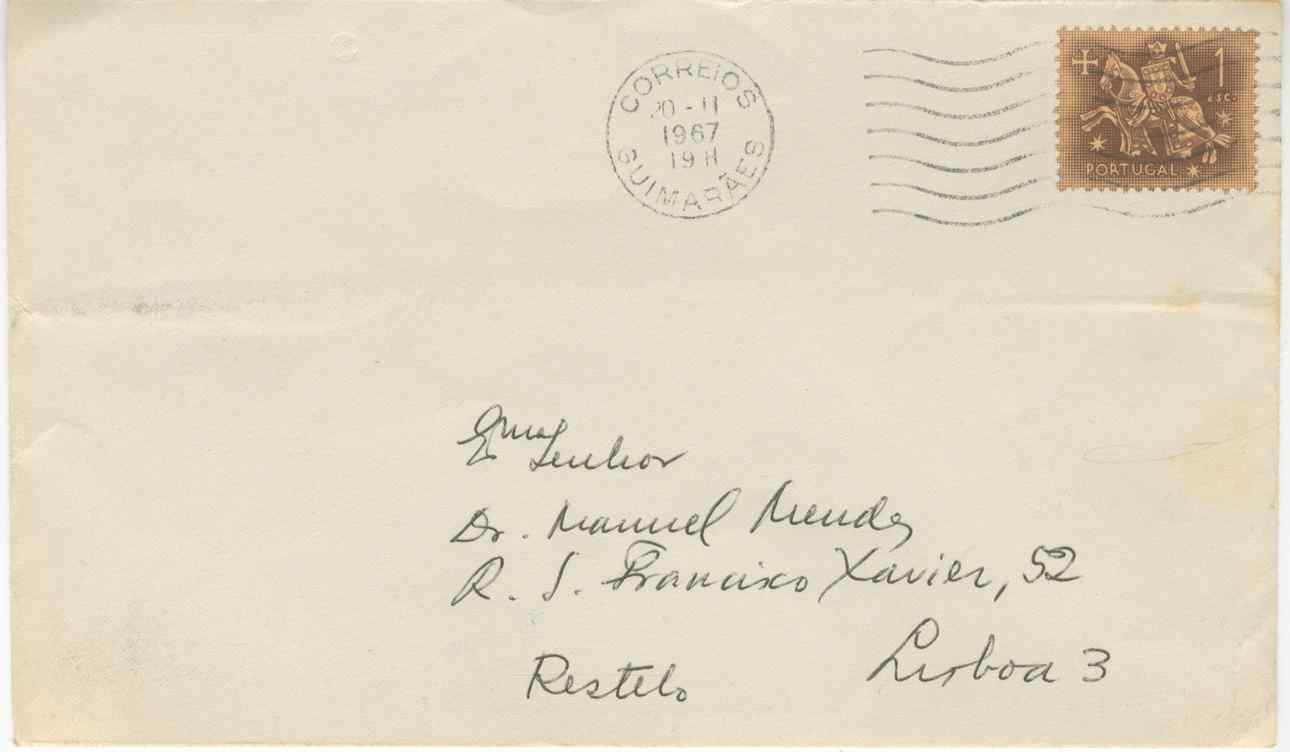 CORREIOS
20 - II
1967
19 H
GUIMARÃES
1
ESC.
PORTUGAL
Exmo Senhor
Dr. Manuel Mendes
R. S. Francisco Xavier, 52
Restelo Lisboa 3